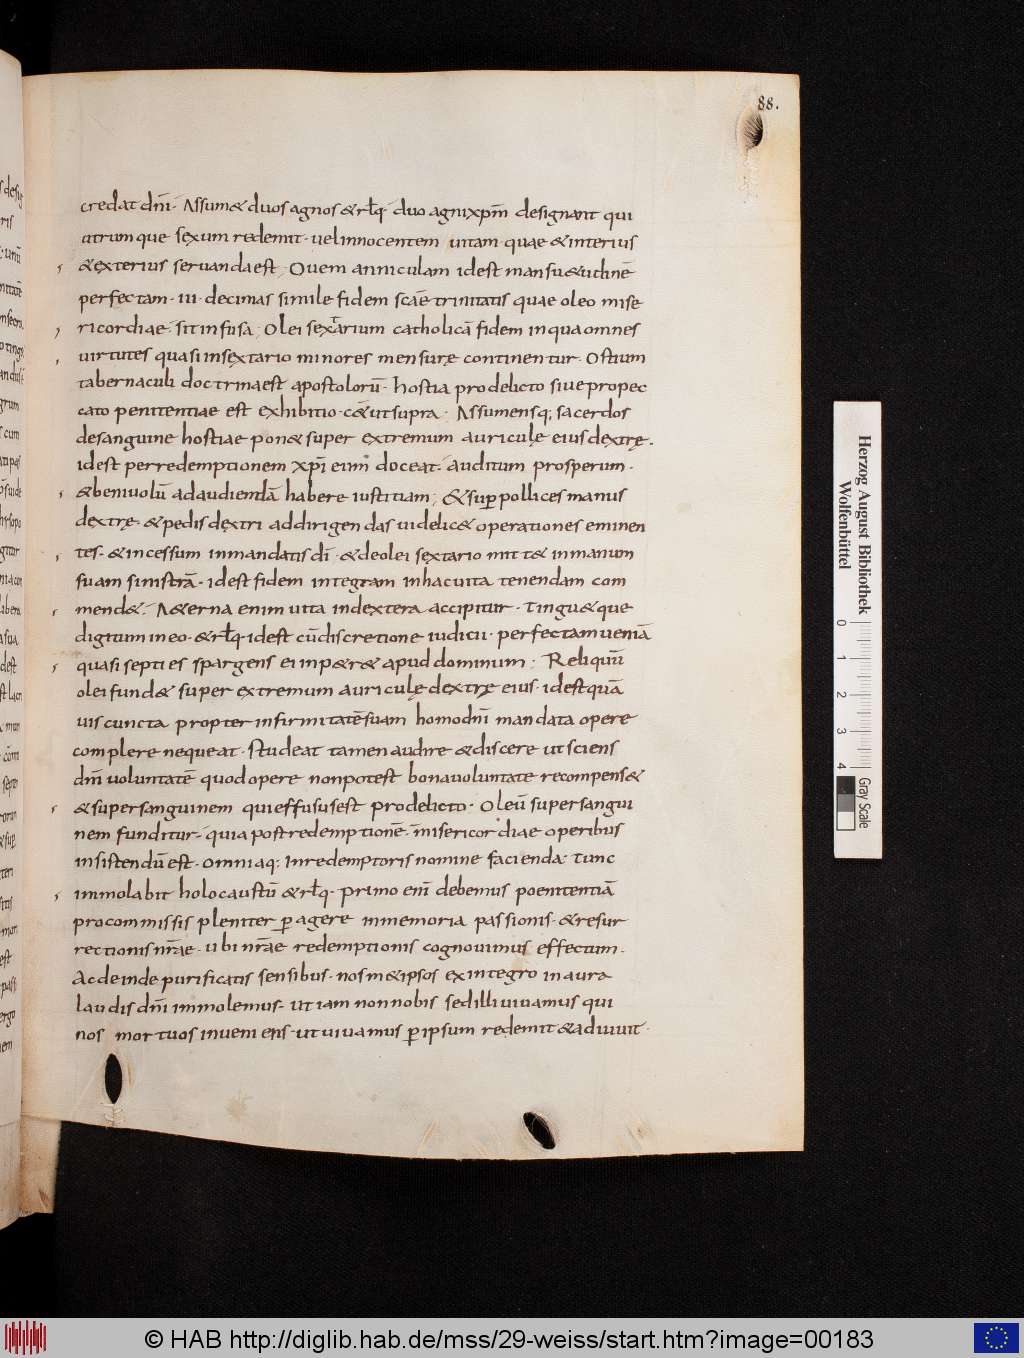 88.
credat dñi· Assum& duos agnos &rłq· duo agni xp̄m designant qui
utrumque sexum redemit· uel innocentem uitam· quae & interius
& exterius seruanda est; Ouem anniculam idest mansu&udinē
perfectam· iii· decimas simile fidem scāe trinitatis quae oleo mise
ricordiae· sit infusa; Olei sextarium catholicā fidem in qua omnes
uirtutes quasi in sęxtario minores mensurę continentur· Ostium
tabernaculi doctrina est apostolorū· hostia pro delicto siue pro pec
cato penitentiae est exhibitio· c& ut supra· Assumensq; sacerdos
de sanguine hostiae pon& super extremum auriculę eius dextrę·
idest per redemptionem xp̄i eum doceat· auditum prosperum·
& beniuolū ad audiendā habere iustitiam; & suꝑ pollices manus
dextrę· & pedis dęxtri ad dirigendas uidelic& operationes eminen
tes· & incessum in mandatis dī· & de olei sęxtario mitt& in manum
suam sinistrā· idest fidem integram in hac uita tenendam com
mend&· A&erna enim uita in dextera accipitur· Tingu&que
digitum in eo· &rłq· idest cū discretione iudicii· perfectam ueniā
quasi septies spargens ei inp&r& apud dominum; Reliquū
olei fund& super extremum auriculę dextrę eius· idest quā
uis cuncta propter infirmitatē suam homo dñi mandata opere
complere nequeat· studeat tamen audire & discere ut sciens
dñi uoluntatē quod opere non potest bona uoluntate recompens&
& super sanguinem qui effusus est pro delicto· Oleū super sangui
nem funditur· quia post redemptionē· misericordiae operibus
insistendū est· omniaq; in redemptoris nomine facienda· Tunc
immolabit holocaustū &rłq· primo enī debemus poenitentiā
pro commissis pleniter ꝑagere in memoria passionis· & resur
rectionis nr̄ae· ubi nr̄ae redemptionis cognouimus effectum·
Ac deinde purificatis sensibus· nosm&ipsos ex integro in aura
laudis dñi immolemus· ut iam non nobis sed illi uiuamus qui
nos mortuos inueniens· ut uiuamus ꝑ ipsum redemit & adiuuit·
Herzog August Bibliothek
Wolfenbüttel
0 1 2 3 4
Gray Scale
© HAB http://diglib.hab.de/mss/29-weiss/start.htm?image=00183